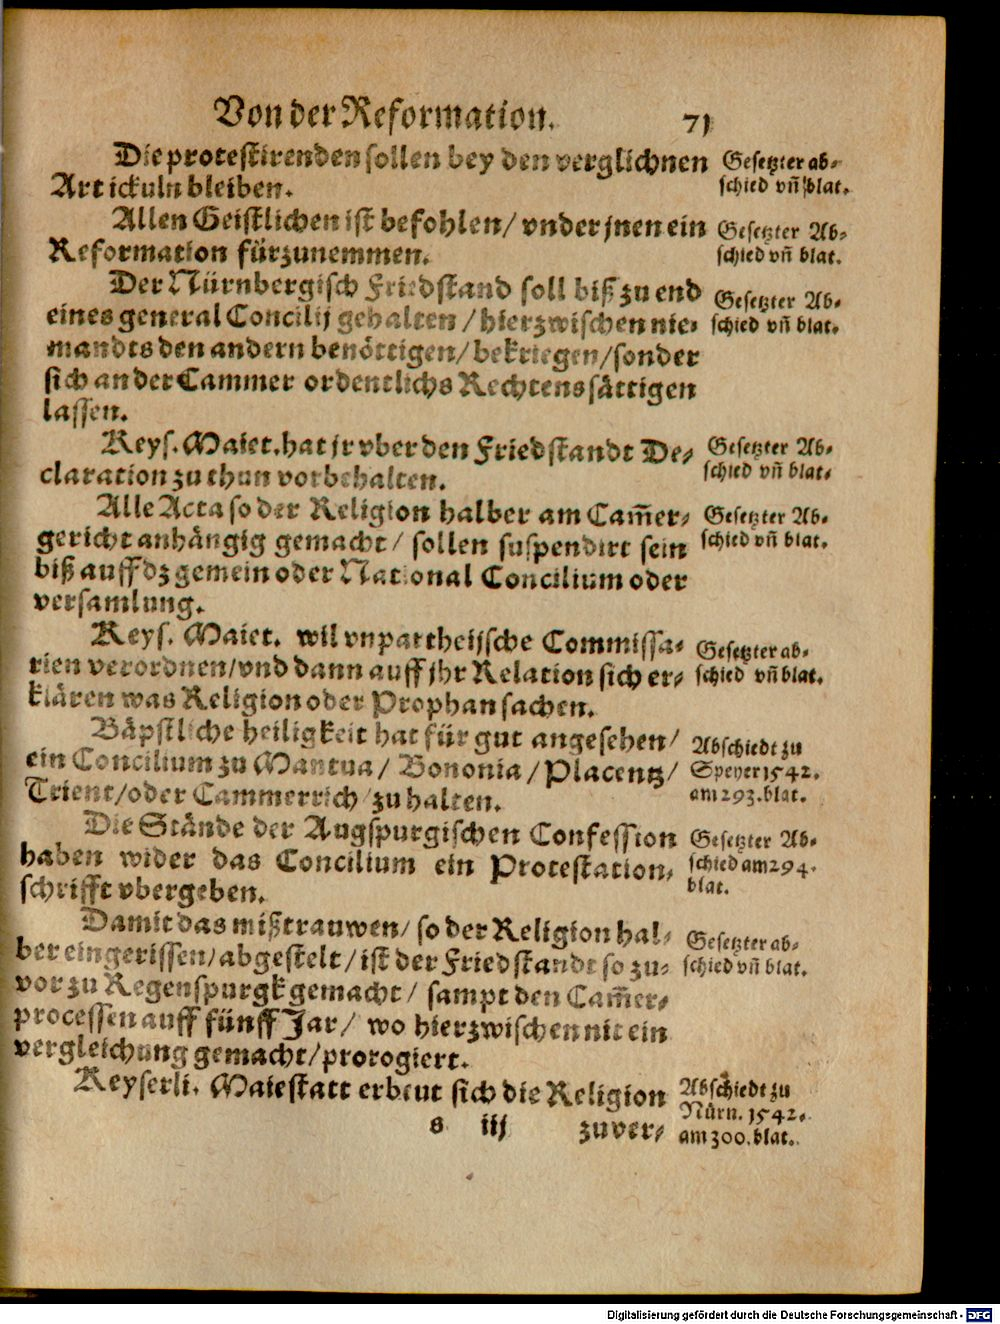 Von der Reformation. 71
Die protestirenden sollen bey den verglichnen
Artickuln bleiben.
Gesetzter ab-
schied vñ blat.
Allen Geistlichen ist befohlen/ vnder jnen ein
Reformation fürzunemmen.
Gesetzter Ab-
schied vñ blat.
Der Nürnbergisch Friedstand soll biß zu end
eines general Concilij gehalten/ hierzwischen nie-
mandts den andern benöttigen/ bekriegen/ sonder
sich an der Cammer ordentlichs Rechtens sättigen
lassen.
Gesetzter Ab-
schied vñ blat.
Keys. Maiet. hat jr vber den Friedstandt De-
claration zu thun vorbehalten.
Gesetzter Ab-
schied vñ blat.
Alle Acta so der Religion halber am Cam̃er-
gericht anhängig gemacht/ sollen suspendirt sein
biß auff dz gemein oder National Concilium oder
versamlung.
Gesetzter Ab-
schied vñ blat.
Keys. Maiet. wil vnpartheijsche Commissa-
rien verordnen/ vnd dann auff jhr Relation sich er-
klären was Religion oder Prophan sachen.
Gesetzter ab-
schied vñ blat.
Bäpstliche heiligkeit hat für gut angesehen/
ein Concilium zu Mantua/ Bononia/ Placentz/
Trient/ oder Cammerrich/ zu halten.
Abschiedt zu
Speyer 1542.
am 293. blat.
Die Stände der Augspurgischen Confession
haben wider das Concilium ein Protestation-
schrifft vbergeben.
Gesetzter Ab-
schied am 294.
blat.
Damit das mißtrauwen/ so der Religion hal-
ber eingerissen/ abgestelt/ ist der Friedstandt so zu-
vor zu Regenspurgk gemacht/ sampt den Cam̃er-
processen auff fünff Jar/ wo hierzwischen nit ein
vergleichung gemacht/ prorogiert.
Gesetzter ab-
schied vñ blat.
Keyserli. Maiestatt erbeut sich die Religion
Abschiedt zu
Nürn. 1542.
am 300. blat.
s iij zuver-
Digitalisierung gefördert durch die Deutsche Forschungsgemeinschaft - DFG